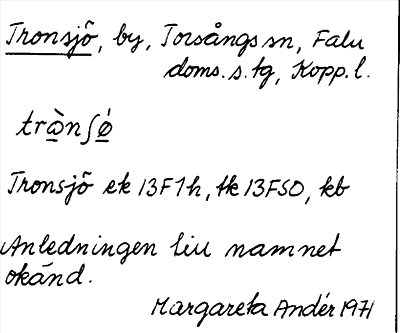 Tronsjö, by, Torsångs sn, Falu
doms. s. tg, Kopp. l.
trò̲nʃǿ̲
Tronsjö ek 13F1h, tk 13FSO, kb
Anledningen till namnet
okänd.
Margareta Andér 1971